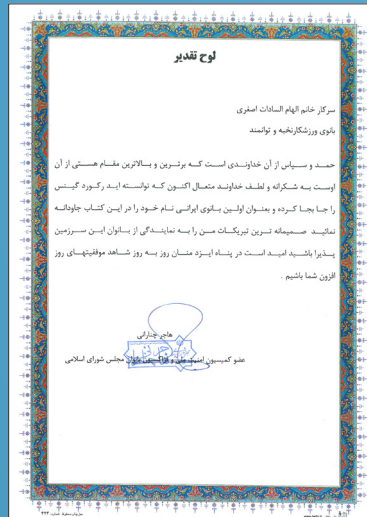 لوح تقدیر
سرکار خانم الهام السادات اصغری
بانوی ورزشکارنخبه و توانمند
حمد و سپاس از آن خداوندی است که برترین و بالاترین مقام هستی از آن
اوست به شکرانه و لطف خداوند متعال اکنون که توانسته اید رکورد گینس
را جا بجا کرده و بعنوان اولین بانوی ایرانی نام خود را در این کتاب جاودانه
نمائید صمیمانه ترین تبریکات من را به نمایندگی از بانوان این سرزمین
پذیرا باشید امید است در پناه ایزد منان روز به روز شاهد موفقیتهای روز
افزون شما باشیم .
هاجر چنارانی
عضو کمیسیون امنیت ملی و فراکسیون بانوان مجلس شورای اسلامی